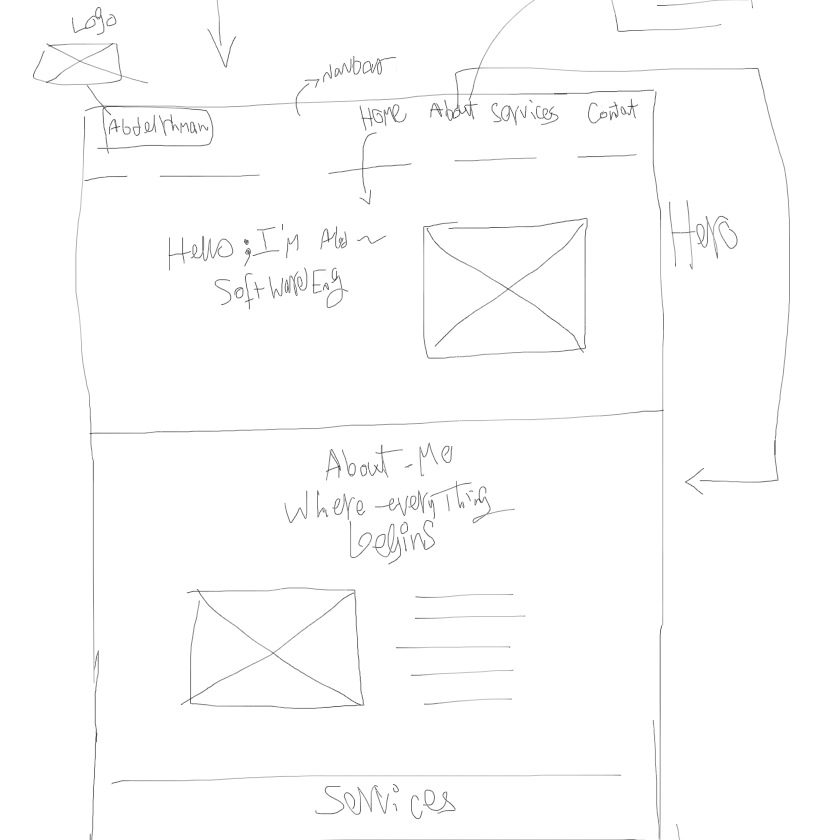 Logo
Navbar
Abdelrhman
Home About Services Contat
Hello ; I'm Abd ~
Software Eng
Hero
About-Me
Where everything
begins
Services